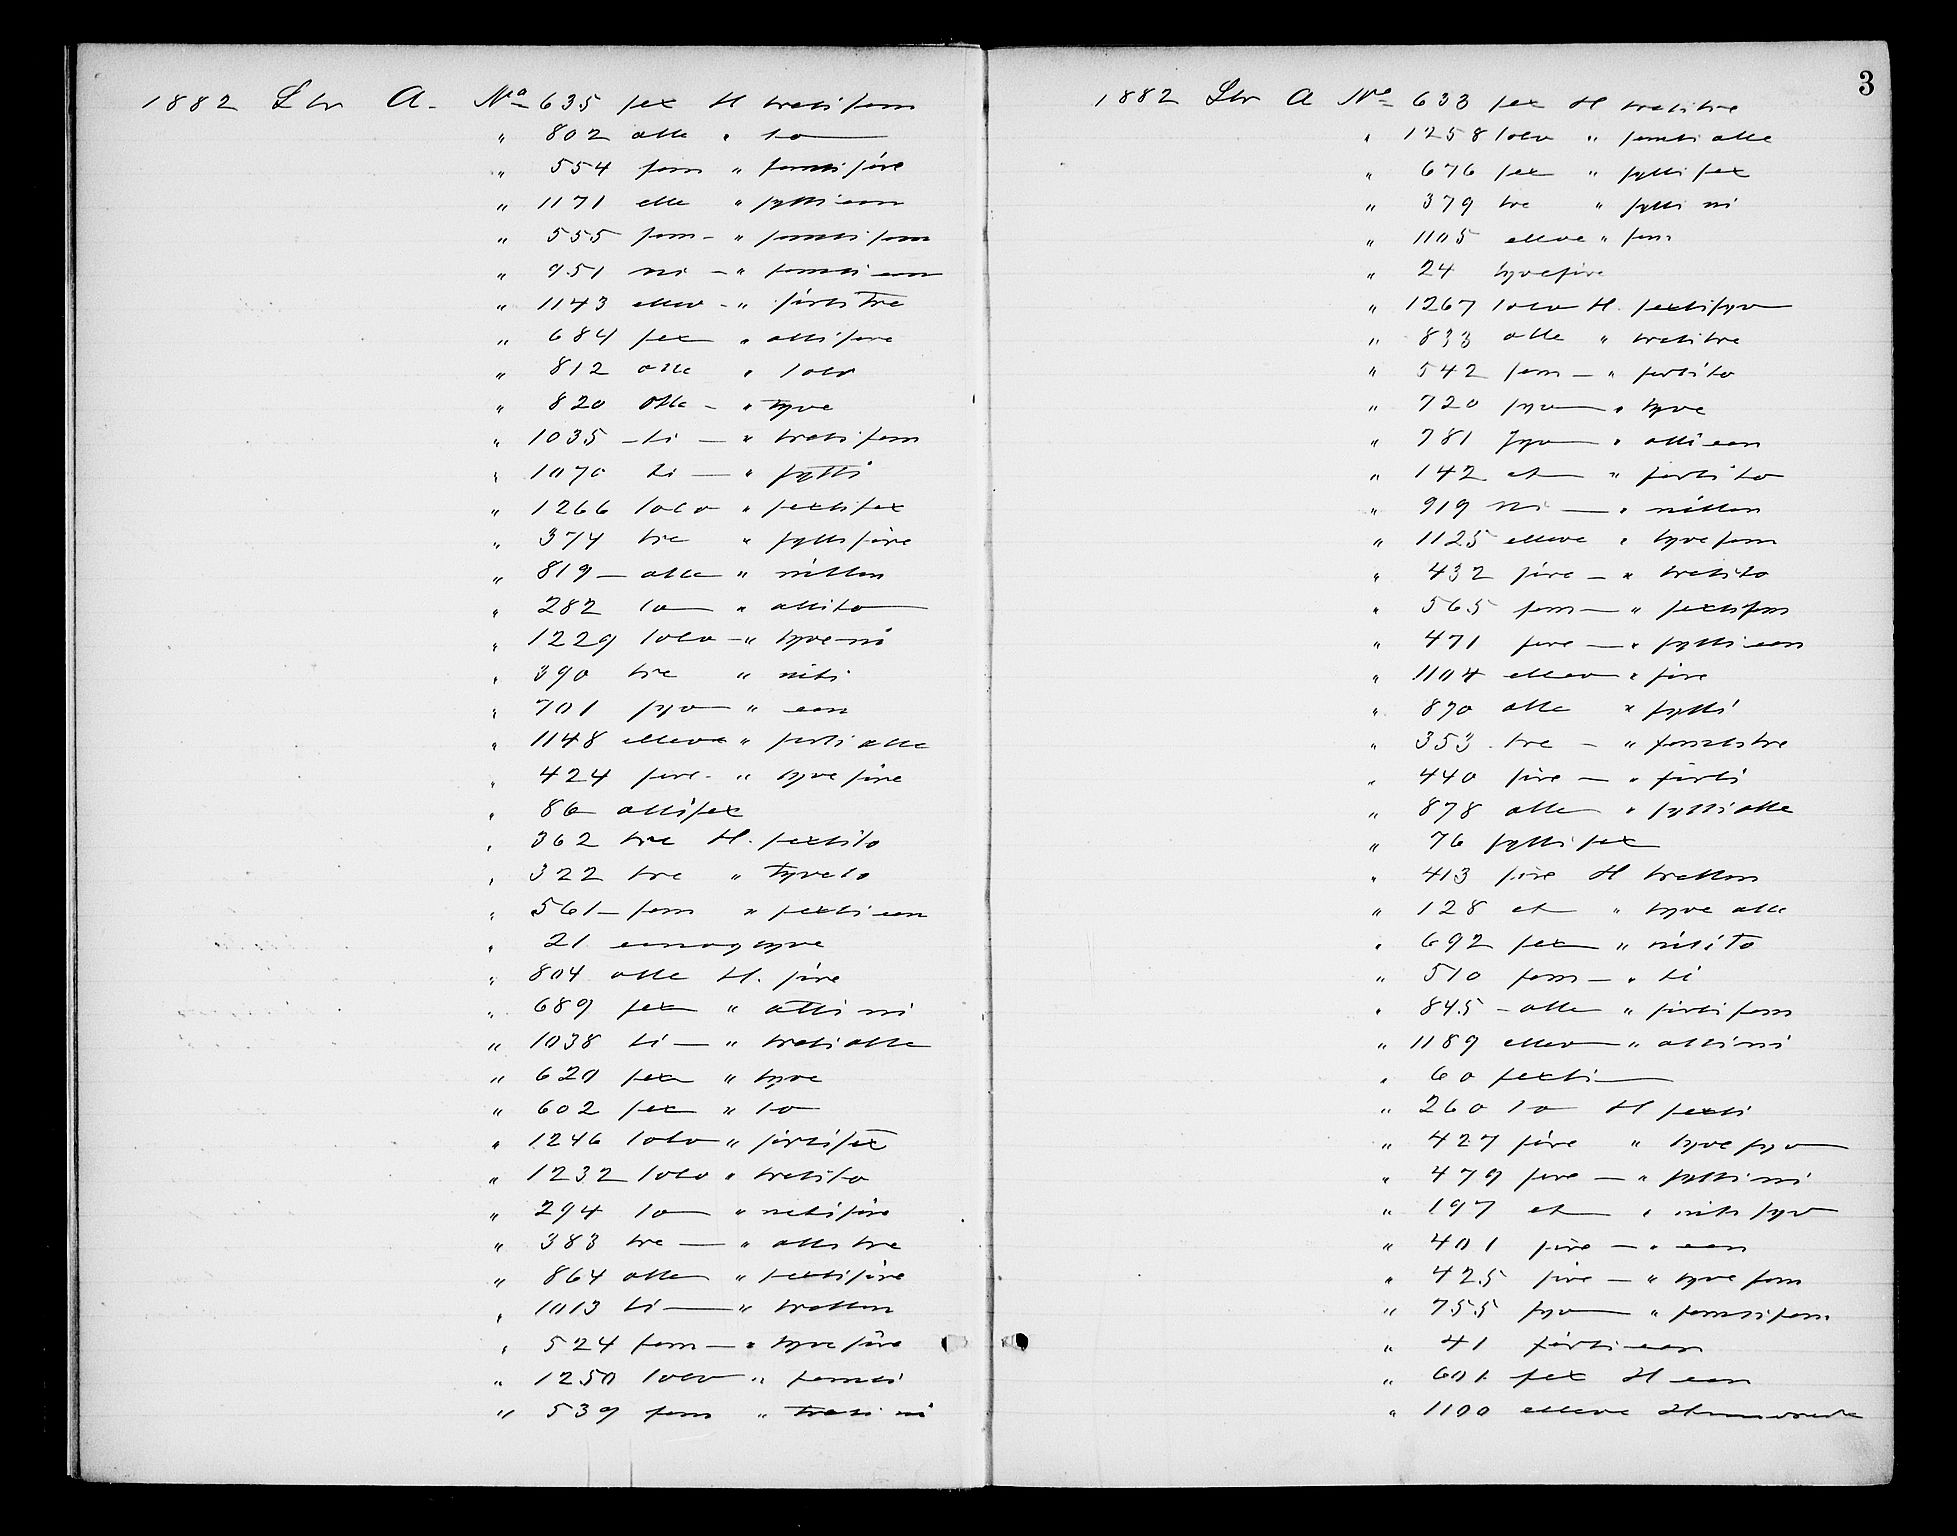 1882 Ltr A. No 635 sex H tretifem
" 802 otte " to
" 554 fem " femtifire
" 1171 elle " sytti een
" 555 fem " femtifem
" 951 ni " femti een
" 1143 ellev " førti tre
" 684 sex " ottifire
" 812 otte " tolv
" 820 otte " tyve
" 1035 ti " treti fem
" 1070 ti " sytti
" 1266 tolv " sextisex
" 374 tre " syttifire
" 819 otte " nitten
" 282 to " ottito
" 1229 tolv " tyve-ni
" 390 tre " niti
" 701 syv " een
" 1148 elleve " førti otte
" 424 fire " tyve fire
" 86 ottisex
" 362 tre H. sextito
" 322 tre " tyveto
" 561 fem " sexti een
" 21 eenogtyve
" 804 otte H. fire
" 689 sex " otti ni
" 1038 ti " treti otte
" 620 sex " tyve
" 602 sex " to
" 1246 tolv " førtisex
" 1232 tolv " tretito
" 294 to " nitifire
" 383 tre " otti tre
" 864 otte " sextifire
" 1013 ti " tretten
" 524 fem " tyve fire
" 1250 tolv " femti
" 539 fem " treti ni
3
1882 Ltr A No 633 sex H tretitre
" 1258 tolv " femti otte
" 676 sex " sytti sex
" 379 tre " sytti ni
" 1105 elleve " fem
" 24 tyvefire
" 1267 tolv H. sextisyv
" 833 otte " tretitre
" 542 fem " førtito
" 720 syv " tyve
" 781 syv " otti een
" 142 et " førti to
" 919 ni " nitten
" 1125 elleve " tyve fem
" 432 fire " tretito
" 565 fem " sextifem
" 471 fire " sytti een
" 1104 ellev " fire
" 870 otte " sytti
" 353 tre " femti tre
" 440 fire " førti
" 878 otte " sytti otte
" 76 sytti sex
" 413 fire H tretten
" 128 et " tyve otte
" 692 sex " niti to
" 510 fem " ti
" 845 otte " førti fem
" 1189 ellev " otti ni
" 60 sexti
" 260 to H sexti
" 427 fire " tyve syv
" 479 fire " sytti ni
" 197 et " niti syv
" 401 fire " een
" 425 fire " tyve fem
" 755 syv " femtifem
" 41 førti een
" 601 sex H een
" 1100 elleve Hundrede